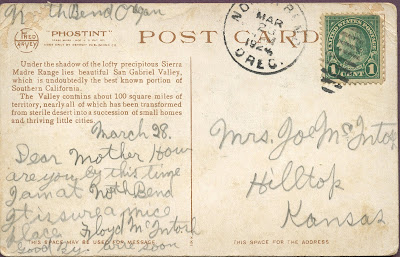 North Bend Oregon
FRED HARVEY
PHOSTINT
POST CARD
NORTH BEND
MAR
1924
OREG.
UNITED STATES POSTAGE
1 CENT 1
Under the shadow of the lofty precipitous Sierra
Madre Range lies beautiful San Gabriel Valley,
which is undoubtedly the best known portion of
Southern California.
The Valley contains about 100 square miles of
territory, nearly all of which has been transformed
from sterile desert into a succession of small homes
and thriving little cities.
March 28.
Dear Mother How
are you by this time
I am at North Bend
it is sure a nice
place. Floyd McIntosh
Good by. write soon
Mrs. Joe McIntosh
Hilltop
Kansas
THIS SPACE MAY BE USED FOR MESSAGE
THIS SPACE IS FOR THE ADDRESS